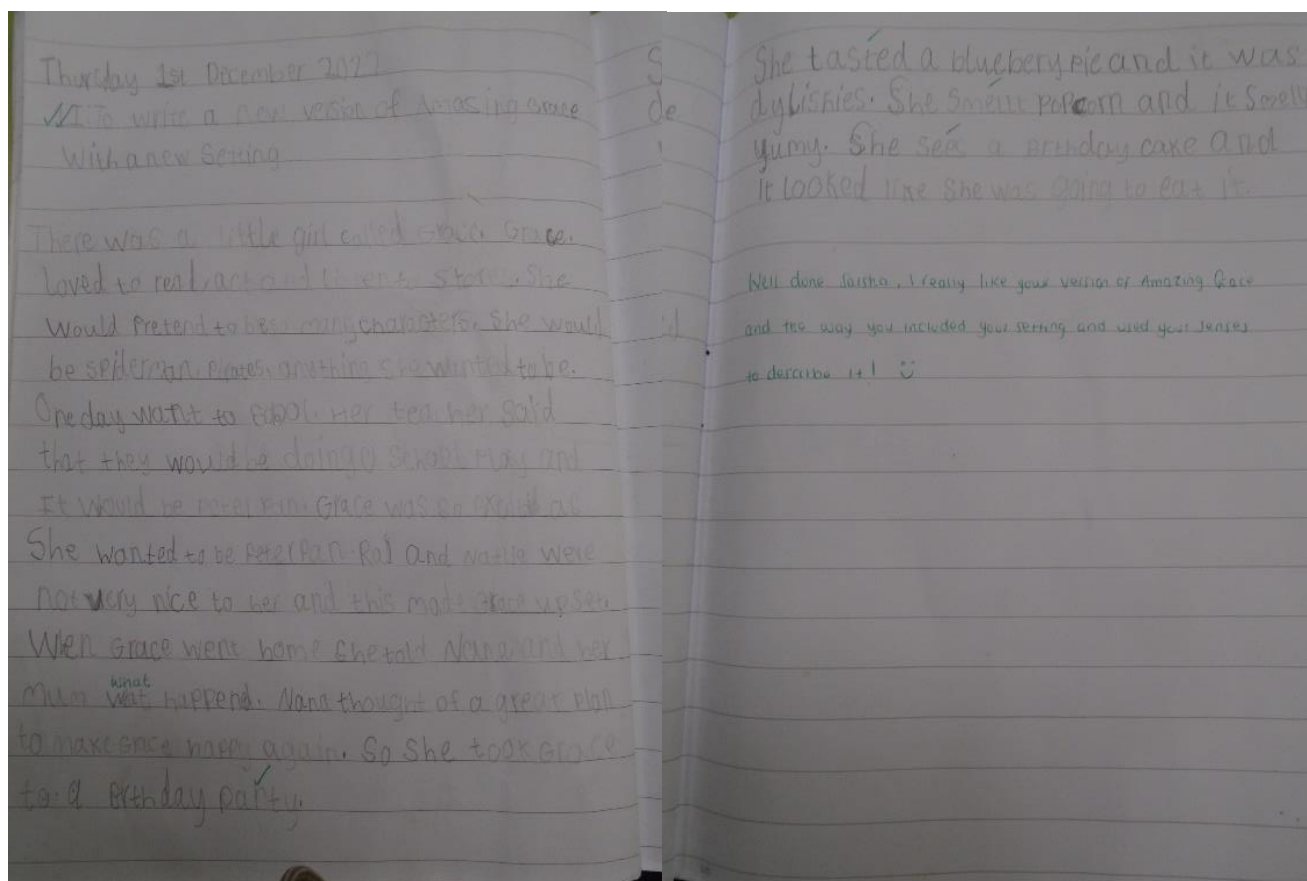 Thursday 1st December 2022
LI: To write a new version of Amasing Grace
With a new Setting
There was a little girl called Grace. Grace.
loved to read, act and listen to store. She
would Pretend to be so many characters. She would
be spiderman, Pirates, anything she wanted to be.
One day want to School. Her teacher said
that they would be doing a School Play and
It would be peter Pan. Grace was so exited as
She wanted to be Peter Pan. Raj and Natlie were
not very nice to her and this made Grace upset.
Wen Grace went home She told Nana and her
what
Mum wat happend. Nana thought of a great Plan
to make Grace happy again. So She took Grace
to a Birthday party.
S
de
She tasted a bluebery pie and it was
dylishies. She Smellt popcorn and it Smell
yumy. She see a Birthday cake and
it Looked like She was going to eat it.
Well done Saisha, I really like your version of Amazing Grace
and the way you included your setting and used your senses
to describe it!